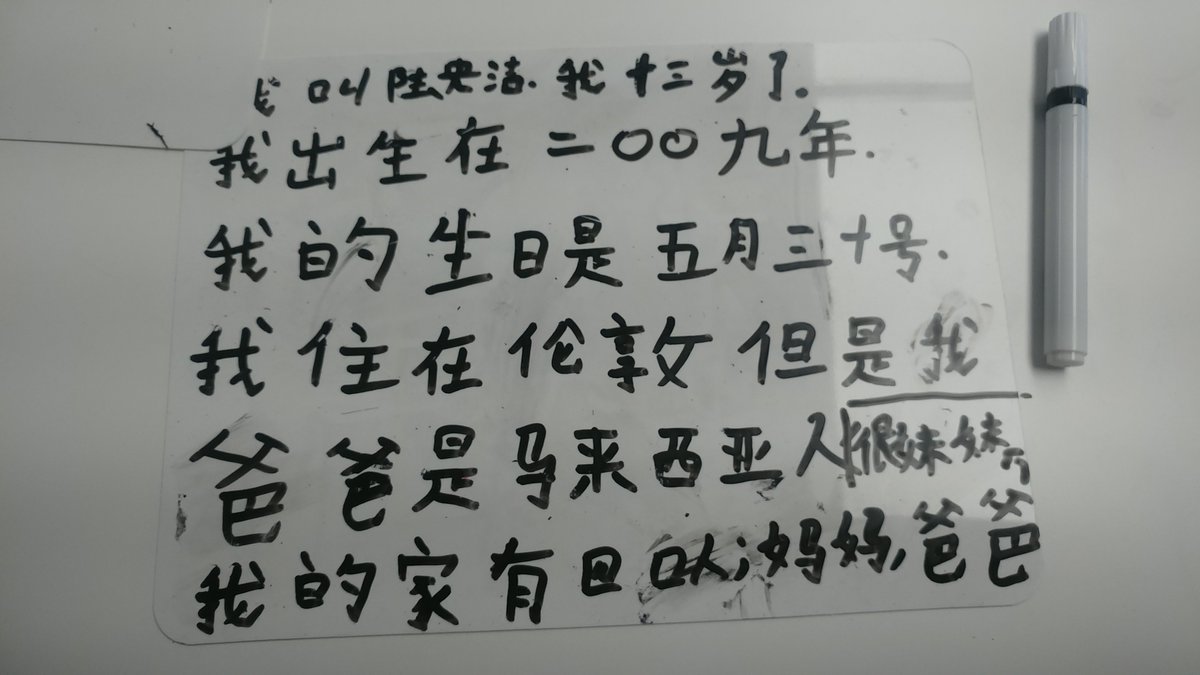 我叫陆央洁.我十三岁了.
我出生在二〇〇九年.
我的生日是五月三十号.
我住在伦敦但是我
爸爸是马来西亚人 很妹妹
我的家有四口人;妈妈,爸爸